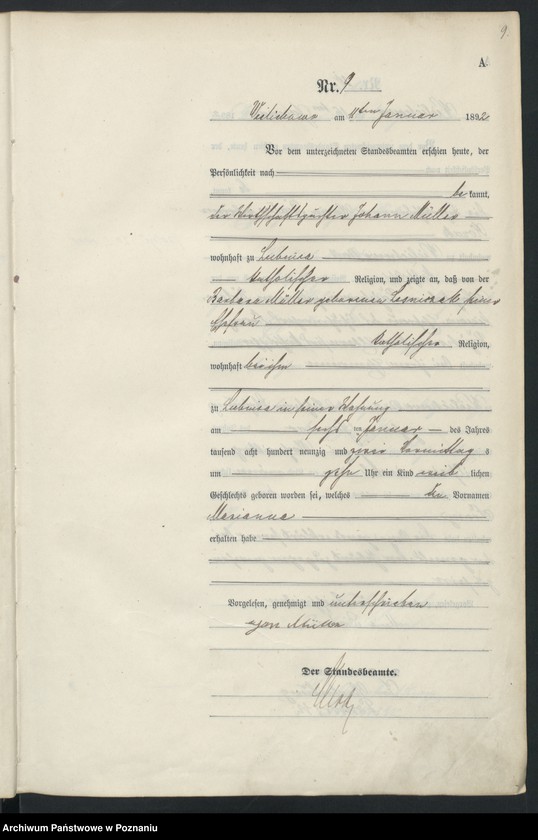 9.
A.
Nr. 9
Wielichowo am 11ten Januar 1892
Vor dem unterzeichneten Standesbeamten erschien heute, der
Persönlichkeit nach
bekannt,
der Wirthschaftspächter Johann Müller
wohnhaft zu Lubnica
katholischer Religion, und zeigte an, daß von der
Barbara Müller geborenen seiner
Ehefrau
katholischer Religion,
wohnhaft bei ihm
zu Lubnica in seiner Wohnung
am sechsten Januar des Jahres
tausend acht hundert neunzig und zwei Vormittags
um zehn Uhr ein Kind weiblichen
Geschlechts geboren worden sei, welches den Vornamen
Marianna
erhalten habe
Vorgelesen, genehmigt und unterschrieben
Jan Müller
Der Standesbeamte.
Archiwum Państwowe w Poznaniu